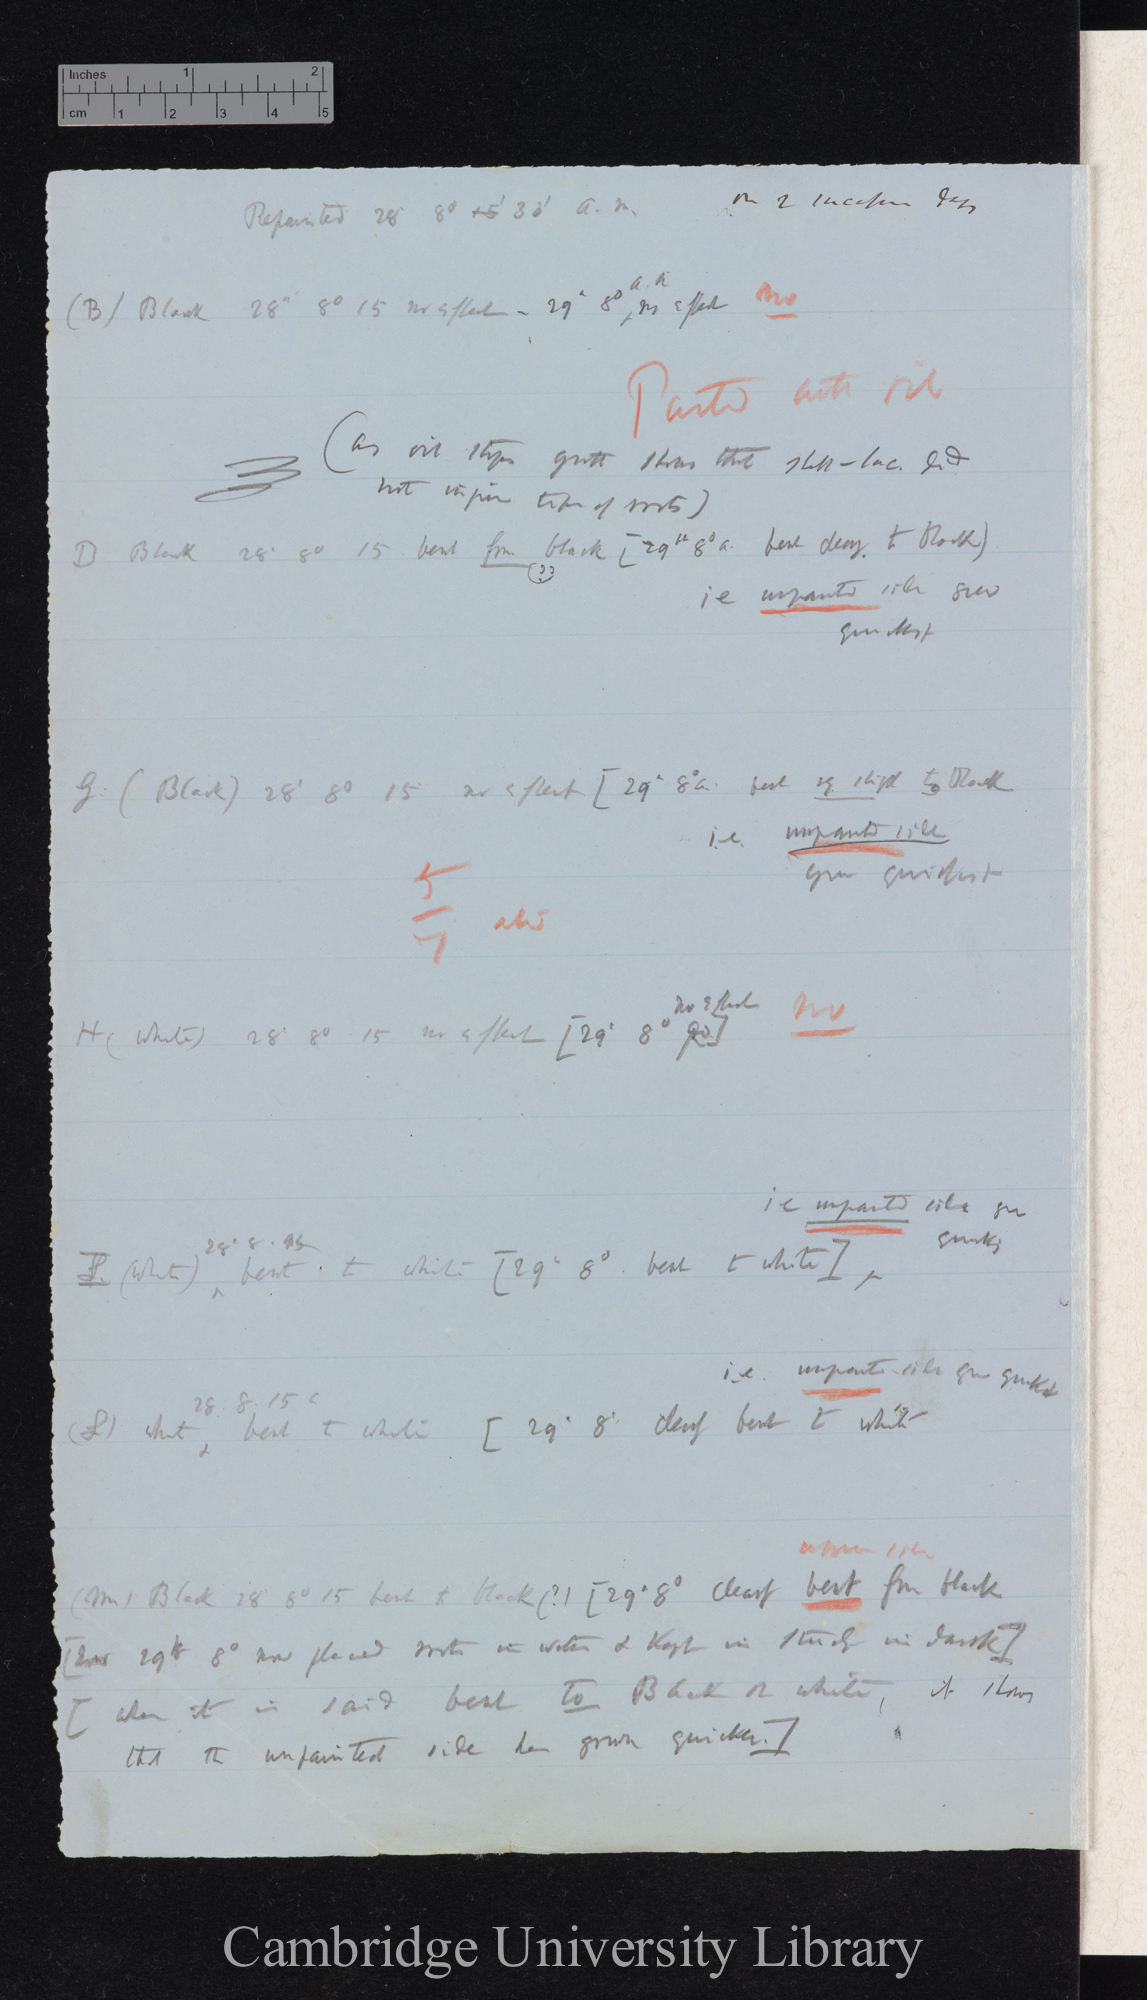 Inches 1 2
cm 1 2 3 4 5
Repainted 28 8° 30' a.m. on 2 successive days
(B) Black 28th 8° 15 no effect - 29th 8° a.m. no effect No
Painted with oil
(as oil stops growth shows that shell-lac. did
not injure tips of roots)
D Black 28 8° 15 bent from black [29th 8° a. bent to black)
(??)
i e unpainted side grew
quickest
G. (Black) 28 8° 15 no effect [29th 8° a. bent to black
i.e. unpainted side
grew quickest
5
7
no effect
H (White) 28 8° 15 no effect [29 8°] no
i e unpainted side grew
28 8. 15
I. (White) bent to white [29 8° bent to white]
i.e. unpainted side grew quickest
28. 8. 15
(L) white bent to white [29 8 bent to white
(M) Black 28 8° 15 bent to black (?) [29 8° bent from black
[29th 8° now placed roots in water & kept in study in dark]
[when it is said bent to Black or white, it shows
that the unpainted side has grown quicker.]
Cambridge University Library